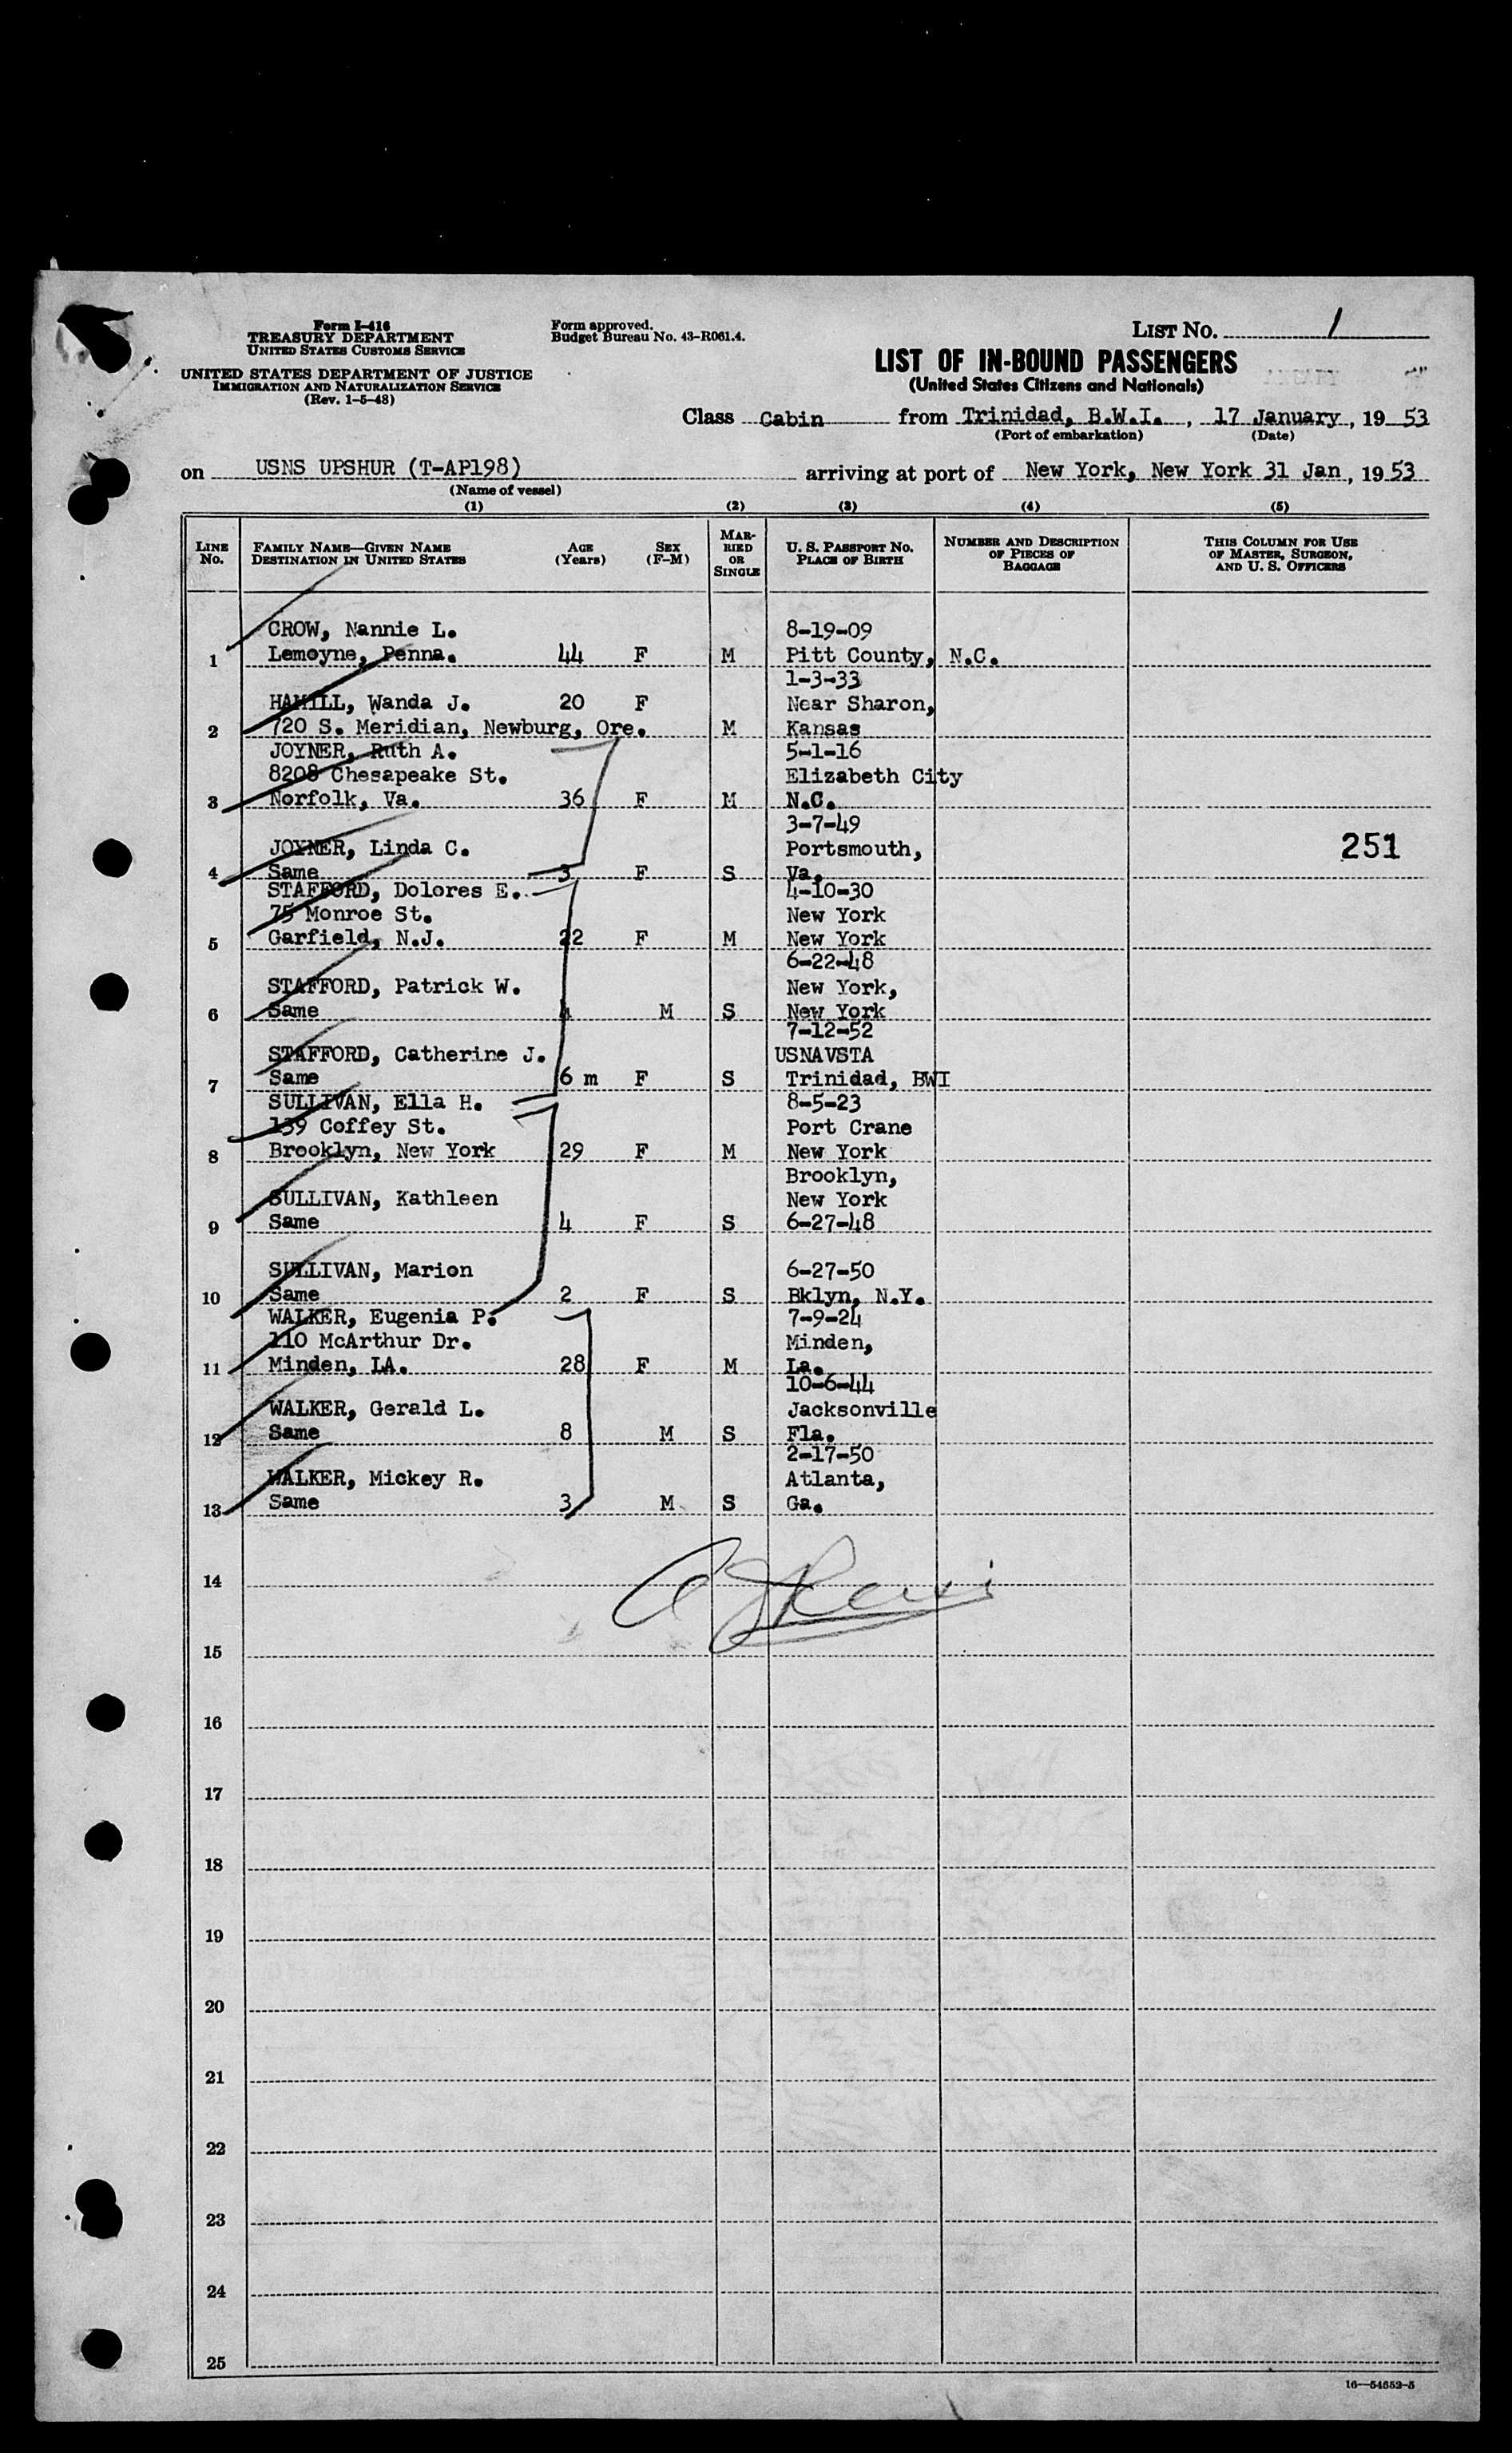 Form I-416
TREASURY DEPARTMENT
UNITED STATES CUSTOMS SERVICE
UNITED STATES DEPARTMENT OF JUSTICE
IMMIGRATION AND NATURALIZATION SERVICE
(Rev. 1-5-48)
Form approved.
Budget Bureau No. 43-R061.4.
LIST NO. 1
LIST OF IN-BOUND PASSENGERS
(United States Citizens and Nationals)
Class Cabin from Trinidad, B.W.I., 17 January, 19 53
(Port of embarkation) (Date)
on USNS UPSHUR (T-AP198) arriving at port of New York, New York 31 Jan, 19 53
(Name of vessel)
(1) (2) (3) (4) (5)
LINE NO.
FAMILY NAME—GIVEN NAME
DESTINATION IN UNITED STATES
AGE (Years)
SEX (F-M)
MARRIED OR SINGLE
U. S. PASSPORT NO.
PLACE OF BIRTH
NUMBER AND DESCRIPTION OF PIECES OF BAGGAGE
THIS COLUMN FOR USE OF MASTER, SURGEON, AND U. S. OFFICERS
CROW, Nannie L. 8-19-09
1 Lemoyne, Penna. 44 F M Pitt County, N.C.
1-3-33
HAMILL, Wanda J. 20 F Near Sharon,
2 720 S. Meridian, Newburg, Ore. M Kansas
JOYNER, Ruth A. 5-1-16
8208 Chesapeake St. Elizabeth City
3 Norfolk, Va. 36 F M N.C.
3-7-49
JOYNER, Linda C. Portsmouth, 251
4 Same 3 F S Va.
STAFFORD, Dolores E. 4-10-30
75 Monroe St. New York
5 Garfield, N.J. 22 F M New York
6-22-48
STAFFORD, Patrick W. New York,
6 Same 4 M S New York
7-12-52
STAFFORD, Catherine J. USNAVSTA
7 Same 6 m F S Trinidad, BWI
SULLIVAN, Ella H. 8-5-23
139 Coffey St. Port Crane
8 Brooklyn, New York 29 F M New York
Brooklyn,
SULLIVAN, Kathleen New York
9 Same 4 F S 6-27-48
SULLIVAN, Marion 6-27-50
10 Same 2 F S Bklyn, N.Y.
WALKER, Eugenia P. 7-9-24
110 McArthur Dr. Minden,
11 Minden, LA. 28 F M La.
10-6-44
WALKER, Gerald L. Jacksonville
12 Same 8 M S Fla.
2-17-50
WALKER, Mickey R. Atlanta,
13 Same 3 M S Ga.
14
15
16
17
18
19
20
21
22
23
24
25
16—54652-5